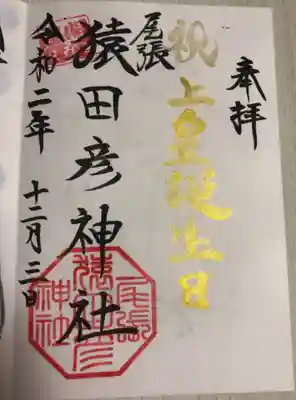 奉拝
祝上皇誕生日
尾張
猿田彦神社
令和二年 十二月三日
尾張
猿田彦
神社